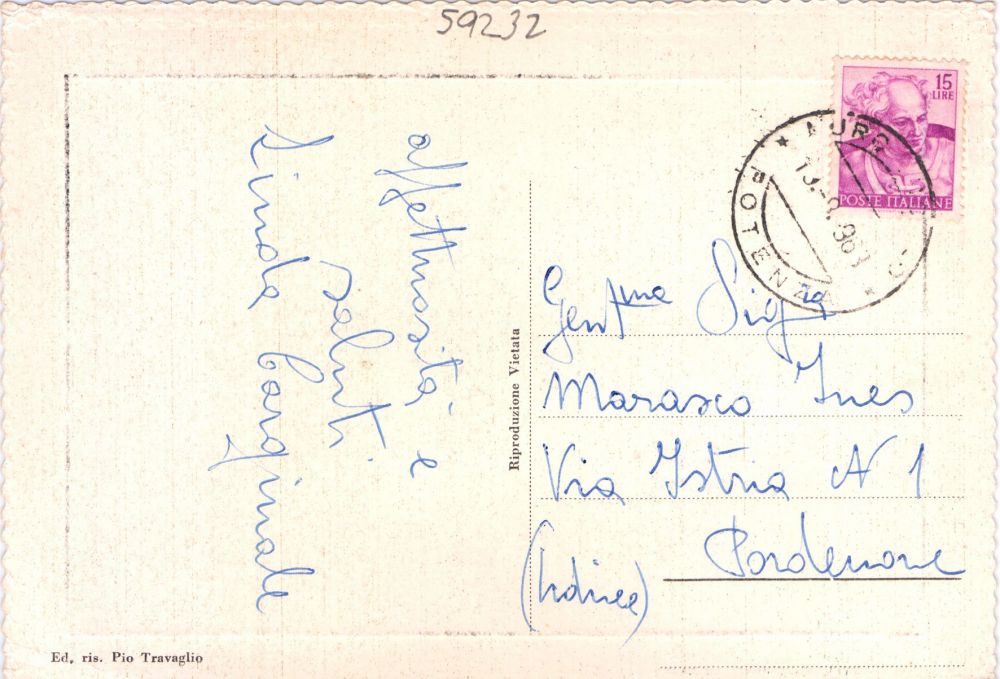 59232
15
LIRE
POSTE ITALIANE
POTENZA
affettuosità e
saluti
Linda
Gent.ma Sig.ra
Marasco Ines
Via Istria N 1
Pordenone
(Udine)
Riproduzione Vietata
Ed. ris. Pio Travaglio